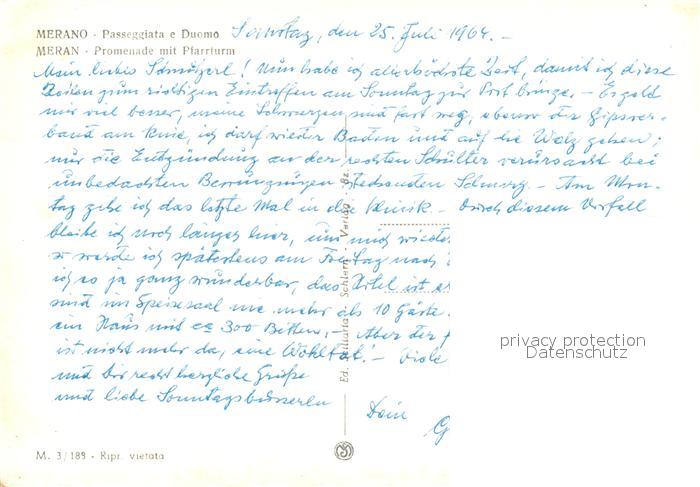 MERANO - Passeggiata e Duomo
MERAN - Promenade mit Pfarrturm
Samstag, den 25. Juli 1964. -
Mein liebes Schnutzerl! Nun habe ich allerhöchste Zeit, damit ich diese
Zeilen zum richtigen Eintreffen am Sonntag zur Post bringe. - Es geht
mir viel besser, meine Schmerzen sind fast weg, ebenso der Gipsver-
band am Knie, ich darf wieder Baden und auf die Walz gehen;
nur die Entzündung an der rechten Schulter verursacht bei
unbedachten Bewegungen stechenden Schmerz. - Am Mon-
tag gehe ich das letzte Mal in die Klinik. - Durch diesem Vorfall
bleibe ich noch länger hier, um mich wiede
werde ich spätestens am Freitag nach
ich es ja ganz wunderbar, das Hotel ist
sind im Speisesaal nie mehr als 10 Gäste.
ein Haus mit ca 300 Betten. - Aber der
ist nicht mehr da, eine Wohltat! - Viele
und Dir recht herzliche Grüße
und liebe Sonntagsbusserln
Dein
G
Ed. Schlern - Verlag - Bz.
M. 3/188 - Ripr. vietata
privacy protection
Datenschutz